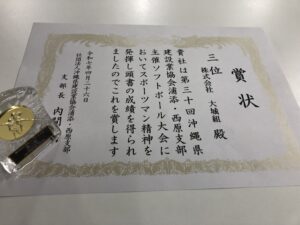 賞状
三位
株式会社 大城組 殿
貴社は第三十回沖縄県
建設業協会浦添・西原支部
主催ソフトボール大会に
おいてスポーツマン精神を
発揮し頭書の成績を得られ
ましたのでこれを賞します
令和七年四月二十六日
社団法人沖縄県建設業協会浦添・西原支部
支部長 内間